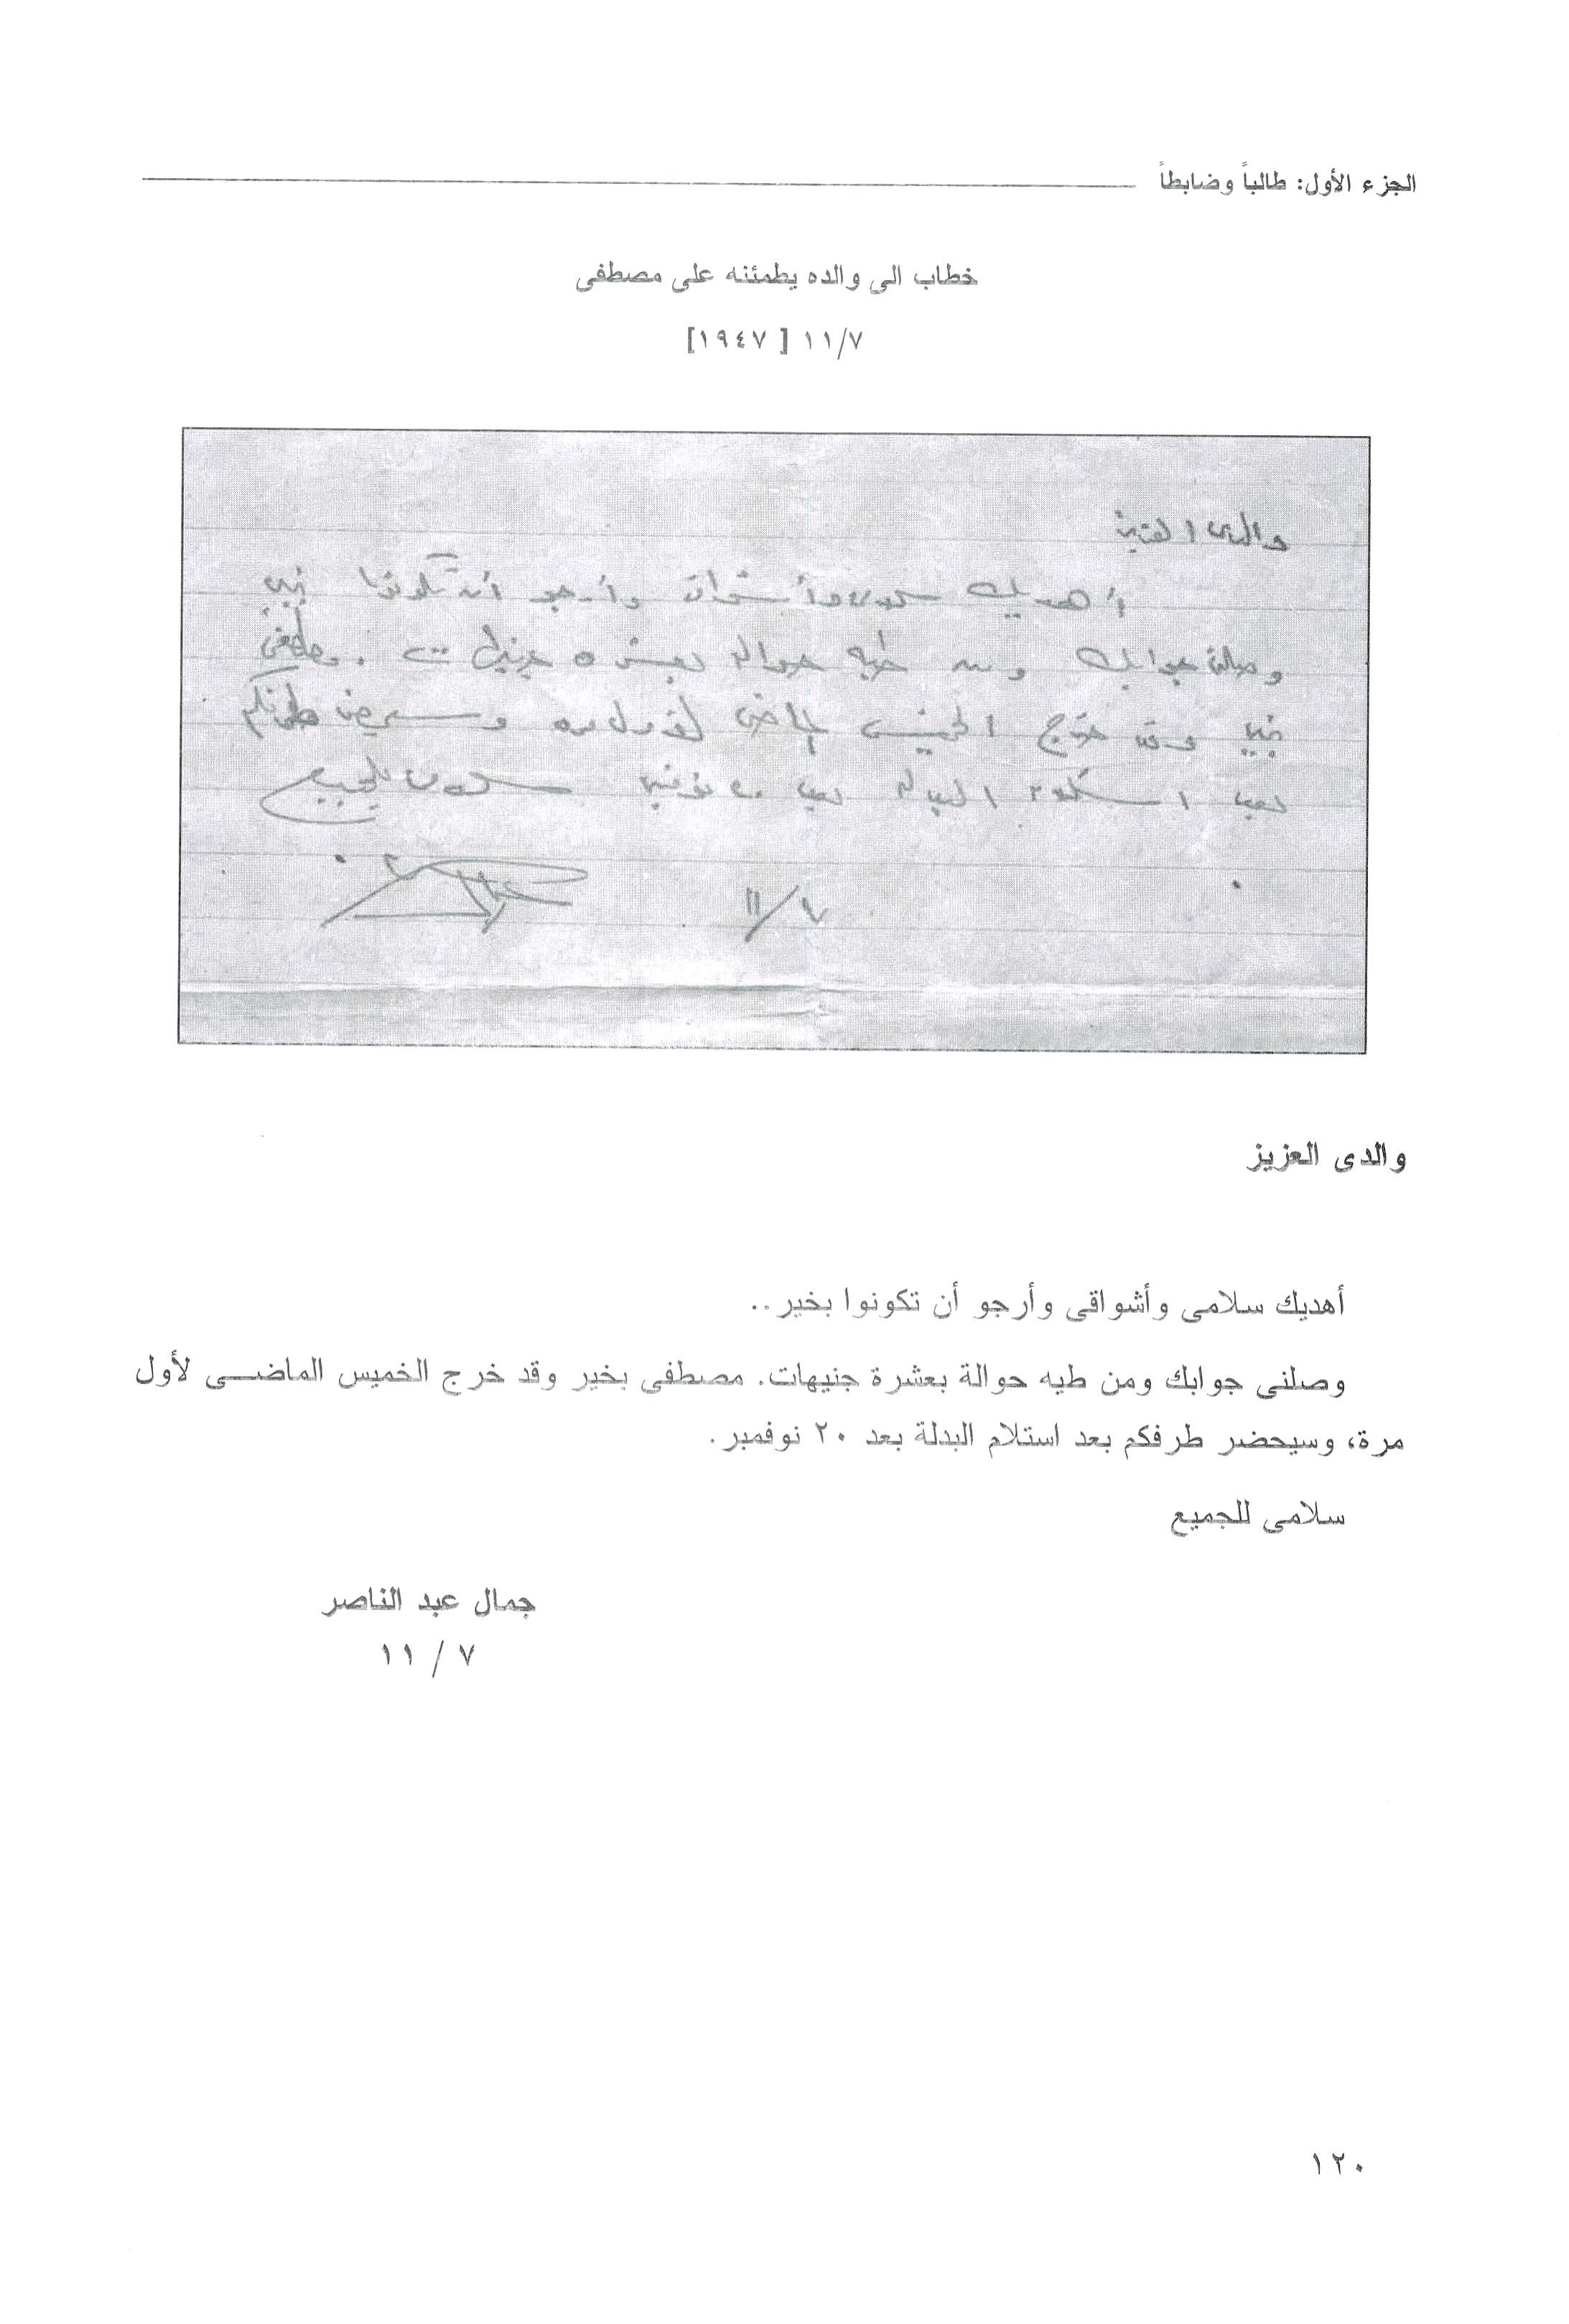 الجزء الأول: طالباً وضابطاً
خطاب الى والده يطمئنه على مصطفى
١١/٧ [ ١٩٤٧]
والدى العزيز
أهديك سلامى وأشواقى وأرجو أن تكونوا بخير
وصلنى جوابك ومن طيه حوالة بعشرة جنيهات . مصطفى
بخير وقد خرج الخميس الماضى لأول مره وسيحضر طرفكم
بعد استلام البدلة بعد ٢٠ نوفمبر سلامى للجميع
١١/٧
والدى العزيز
أهديك سلامى وأشواقى وأرجو أن تكونوا بخير..
وصلنى جوابك ومن طيه حوالة بعشرة جنيهات. مصطفى بخير وقد خرج الخميس الماضى لأول
مرة، وسيحضر طرفكم بعد استلام البدلة بعد ٢٠ نوفمبر.
سلامى للجميع
جمال عبد الناصر
١١ / ٧
١٢٠